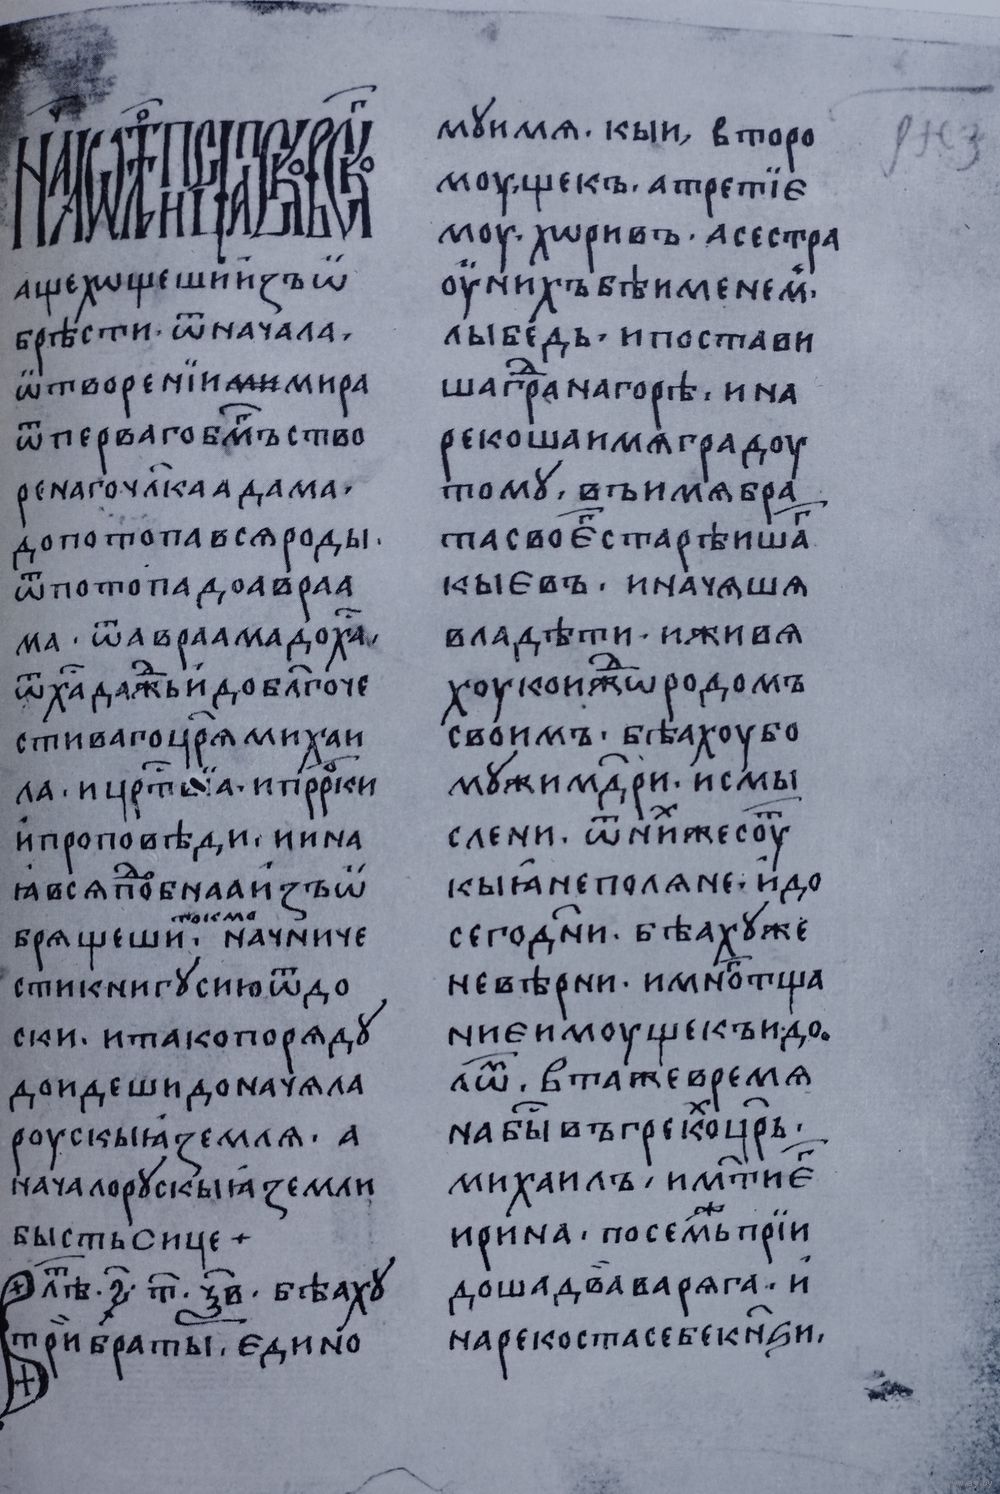 аще хѡщеши и҆ изъѡ
брѣсти · ѿ начала ·
ѿ творенїи мира
ѿ перваго бм҃ъ ство
ренаго чл҃ка адама ·
до потопа вся роды ·
ѿ потопа до авраа
ма · ѿ авраама до ха҃ ·
ѿ ха҃ даⷤ ь и до бл҃гоче
стиваго цр҃ѧ михаи
ла · и црⷭ҇т а · и прⷪ҇рки
и проповѣди · и ина
ꙗ всѧ поⷣбнаа и изъѡ
брѧщеши · токмо начни че
сти книгꙋ сию ѿ до
ски · и тако порѧдꙋ
доидеши до начѧла
роускыꙗ землѧ · а
начало рꙋскыꙗ земли
бысть сице +
лѣⷮ · ҂з҃ · т҃ · ч҃в · бѣахꙋ
три браты · єдино
мꙋ имѧ · кыи, второ
моу · щекъ · а третїє
моу · хѡривъ · а сестра
оу нихъ бѣ именеⷨ ·
лыбедь · и постави
ша граⷣ на горѣ · и на
рекоша имѧ градоу
томꙋ, въ имѧ бра
та своеⷢ старѣишаⷢ
кыєвъ · и начѧшѧ
владѣти · и живѧ
хоу коиждѡ родомъ
своимъ · бѣахоу бо
мꙋжи мⷣри · и смы
слени · ѿ ниⷯже соуⷮ
кыꙗне полѧне · и до
сегоднⷭ҇и · бѣахꙋ же
невѣрни · и мноⷢ тща
ние имоуще къ идо
лѡⷨ · в та же времѧ
наⷭ бы въ грекоⷯ цр҃ь ·
михаилъ, и мт҃и еⷢ
ирина · по сеⷨжь прїи
доша два варѧга · и
нарекоста себе кнѕ҃и ·
рнз